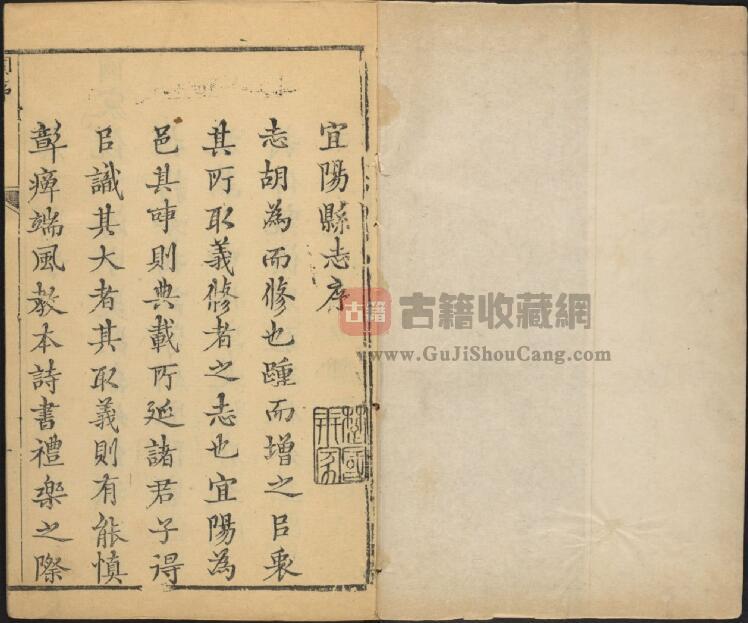 宜陽縣志序
志胡為而修也踵而增之㠯衷
其所取義修者之志也宜陽為
邑其時則典載所延諸君子得
㠯識其大者其取義則有能慎
彰癉端風教本詩書禮樂之際
古籍
古籍收藏網
www.GuJiShouCang.com